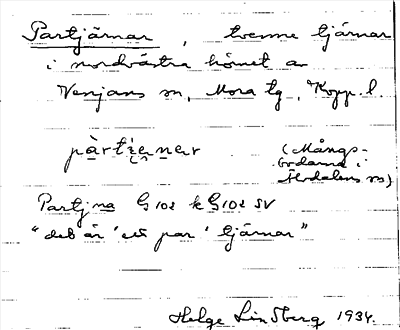 Partjärnar, tvenne tjärnar
i nordvästra hörnet av
Venjans sn, Mora tg, Kopp. l.
pàrtienar (Mångs-
bodarna i
Älvdalens sn)
Partj.na G 102 k G 102 SV
"det är 'ett par' tjärnar"
Helge Lindberg 1934.